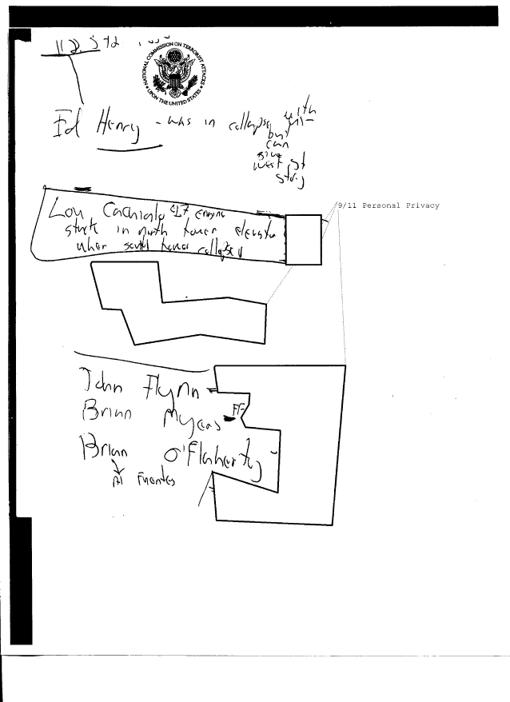 112
NATIONAL COMMISSION ON TERRORIST ATTACKS
UPON THE UNITED STATES
Ed Henry - was in collapse with
but
can
give
west st
story
9/11 Personal Privacy
Lou 47 engine
stuck in north tower elevator
when south tower collapsed
John Flynn
Brian Myers
FF-
Brian O'Flaherty
Al Fuentes